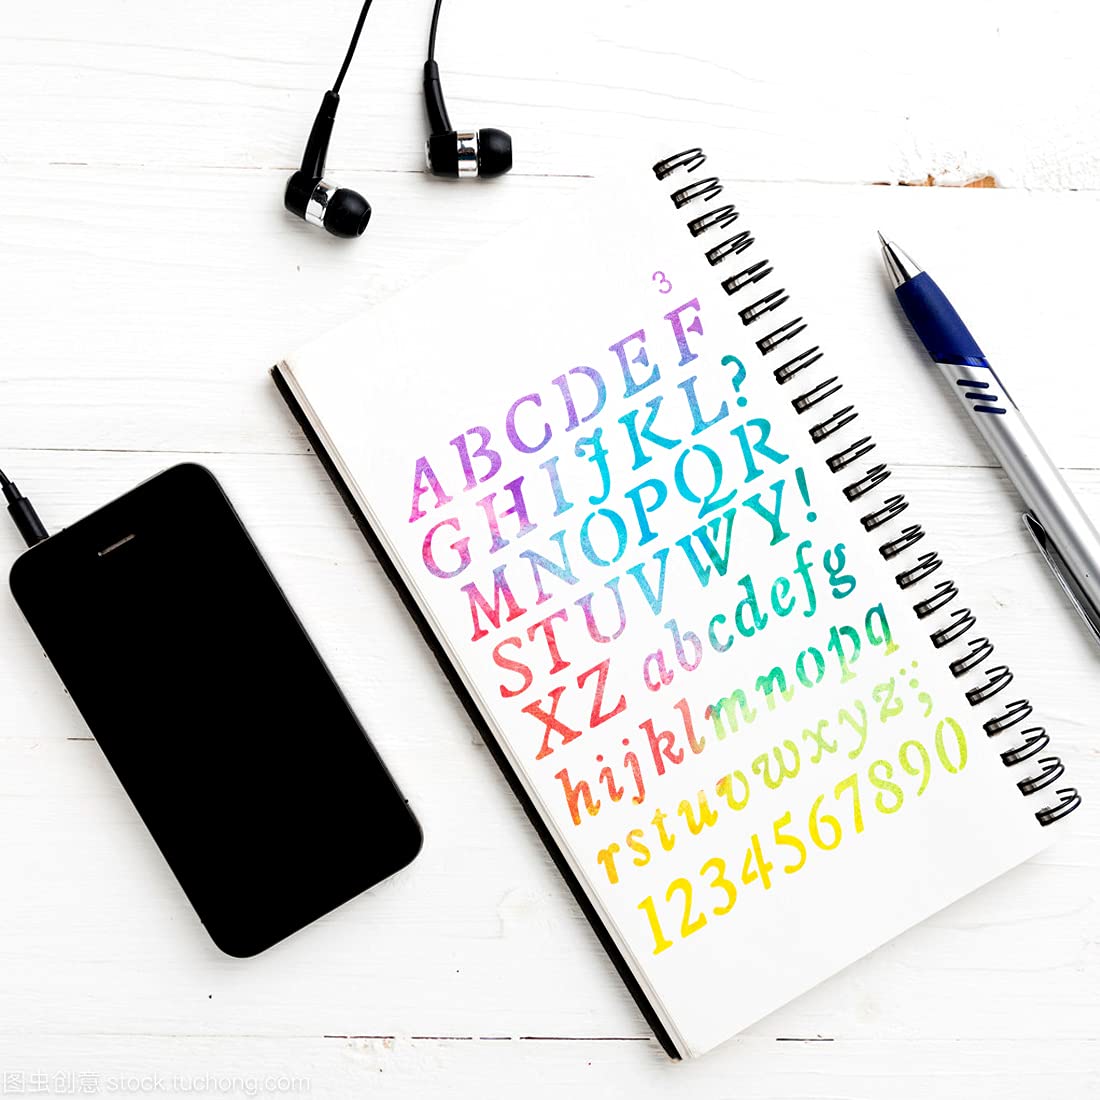 3
ABCDEF
GHIJKL?
MNOPQR
STUVWY!
XZ abcdefg
hijklmnopq
rstuvwxyz:;
1234567890
图虫创意 stock.tuchong.com